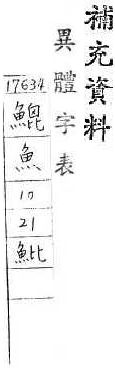 補充資料
異體字表
17634
鯤
魚
10
21
䱱